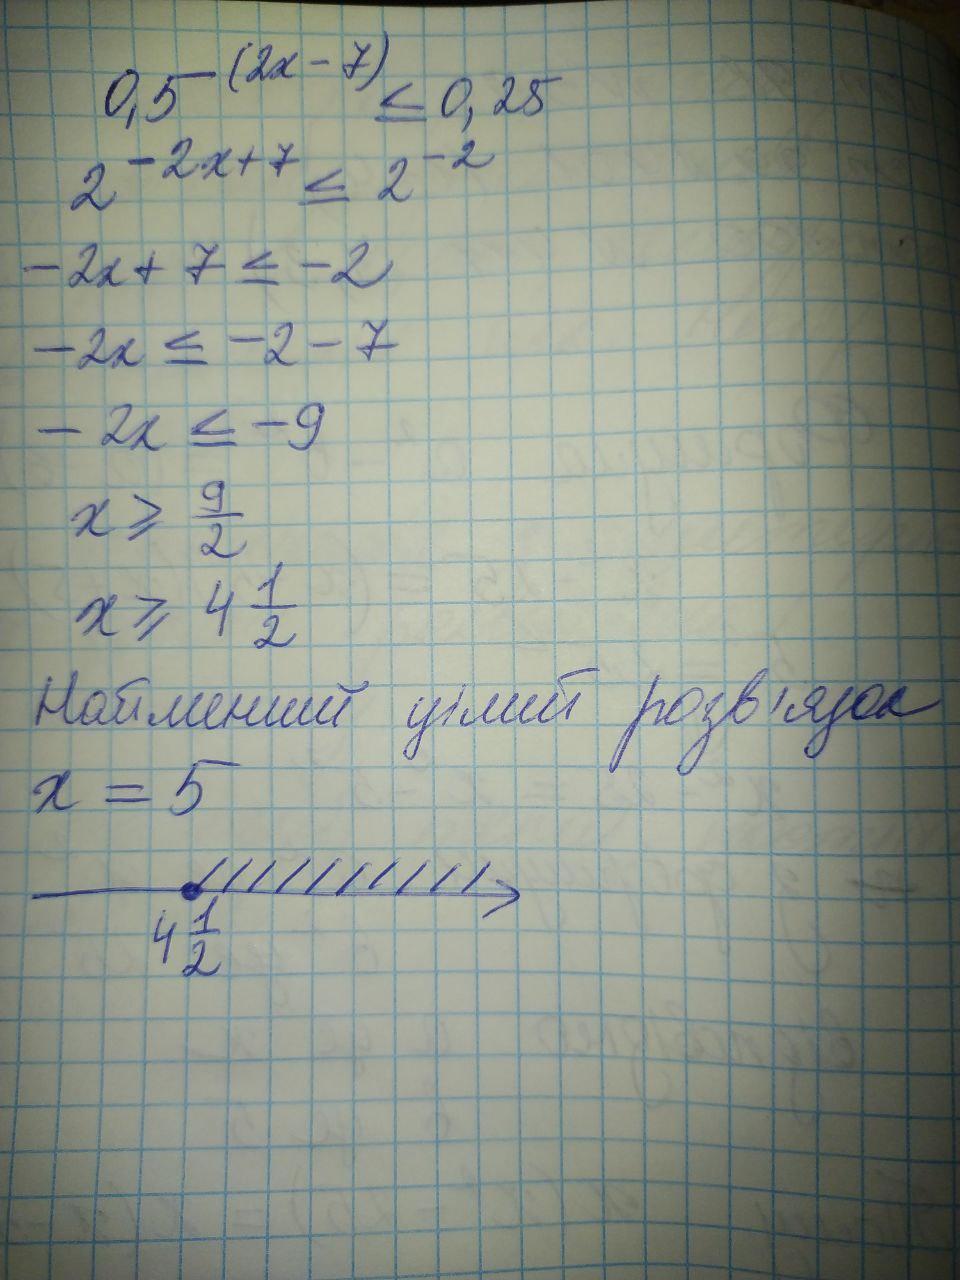 0,5^(2x-7) ≤ 0,25
2^-2x+7 ≤ 2^-2
-2x+7 ≤ -2
-2x ≤ -2-7
-2x ≤ -9
x ⩾ 9/2
x ⩾ 4 1/2
Найменший цілий розв'язок
x = 5
4 1/2